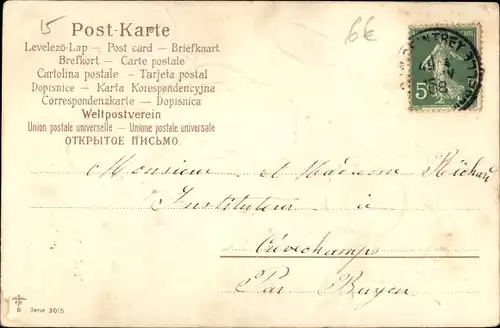 15
6€
Post-Karte
Levelező-Lap — Post card — Briefkaart
Brefkort — Carte postale
Cartolina postale — Tarjeta postal
Dopisnice — Karta Korespondencyjna
Correspondenzkarte — Dopisnica
Weltpostverein
Union postale universelle — Unione postale universale
ОТКРЫТОЕ ПИСЬМО
5
08
Monsieur et Madame Richard
Instituteur à
Crévechamps
Par Bayon
B Serie 3015